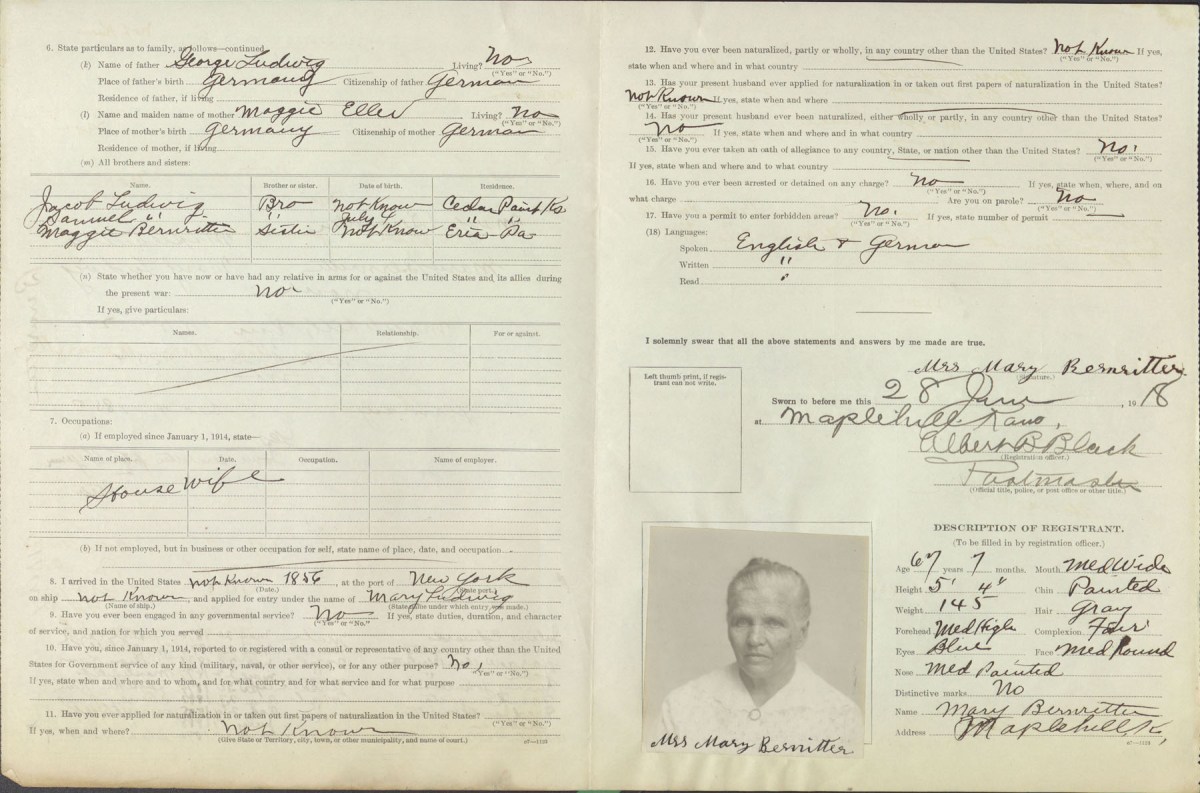 6. State particulars as to family, as follows—continued.
(k) Name of father George Ludwig Living? No
("Yes" or "No.")
Place of father's birth Germany Citizenship of father German
Residence of father, if living
(l) Name and maiden name of mother Maggie Eller Living? No
("Yes" or "No.")
Place of mother's birth Germany Citizenship of mother German
Residence of mother, if living
(m) All brothers and sisters:
Name. Brother or sister. Date of birth. Residence.
Jacob Ludwig Bro Not Know Cedar Point Ks
Samuel " " July 4 " "
Maggie Bernritter Sister Not Know Erie Pa
(n) State whether you have now or have had any relative in arms for or against the United States and its allies during
the present war: No
("Yes" or "No.")
If yes, give particulars:
Names. Relationship. For or against.
7. Occupations:
(a) If employed since January 1, 1914, state—
Name of place. Date. Occupation. Name of employer.
House Wife
(b) If not employed, but in business or other occupation for self, state name of place, date, and occupation
8. I arrived in the United States Not Known 1856, at the port of New York
(Date.) (State port.)
on ship Not Known, and applied for entry under the name of Mary Ludwig
(Name of ship.) (State name under which entry was made.)
9. Have you ever been engaged in any governmental service? No If yes, state duties, duration, and character
("Yes" or "No."
of service, and nation for which you served
10. Have you, since January 1, 1914, reported to or registered with a consul or representative of any country other than the United
States for Government service of any kind (military, naval, or other service), or for any other purpose? No,
"Yes" or "No.")
If yes, state when and where and to whom, and for what country and for what service and for what purpose
11. Have you ever applied for naturalization in or taken out first papers of naturalization in the United States?
("Yes" or "No.")
If yes, when and where? Not Known
(Give State or Territory, city, town, or other municipality, and name of court.) c7—1123
12. Have you ever been naturalized, partly or wholly, in any country other than the United States? Not Known If yes,
("Yes" or "No.")
state when and where and in what country
13. Has your present husband ever applied for naturalization in or taken out first papers of naturalization in the United States?
Not Known If yes, state when and where
("Yes" or "No.")
14. Has your present husband ever been naturalized, either wholly or partly, in any country other than the United States?
No If yes, state when and where and in what country
("Yes" or "No.")
15. Have you ever taken an oath of allegiance to any country, State, or nation other than the United States? No.
("Yes" or "No.")
If yes, state when and where and to what country
16. Have you ever been arrested or detained on any charge? No If yes, state when, where, and on
("Yes" or "No.")
what charge Are you on parole? No
("Yes" or "No.")
17. Have you a permit to enter forbidden areas? No. If yes, state number of permit
("Yes" or "No.")
(18) Languages:
Spoken English + German
Written "
Read "
I solemnly swear that all the above statements and answers by me made are true.
Left thumb print, if regis-
trant can not write.
Mrs Mary Bernritter.
(Signature.)
Sworn to before me this 28 June, 1918
at Maplehill Kans,
Elbert B Black
(Registration officer.)
Postmaster
(Official title, police, or post office or other title.)
DESCRIPTION OF REGISTRANT.
(To be filled in by registration officer.)
Age 67 years 7 months. Mouth Med Wide
Height 5' 4" Chin Pointed
Weight 145 Hair Gray
Forehead Med High Complexion Fair
Eyes Blue Face Med Round
Nose Med Pointed
Distinctive marks No
Name Mary Bernritter
Address Maplehill, K,
c7—1123
Mrs Mary Bernritter